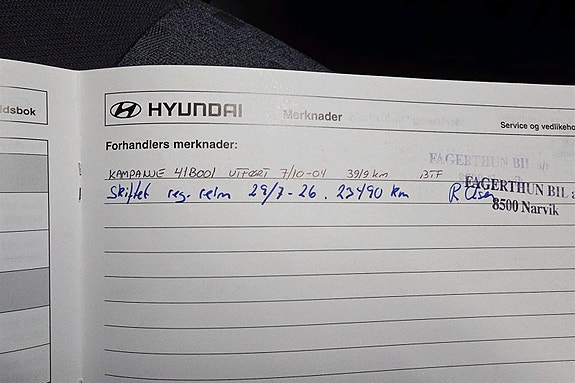 dsbok
HYUNDAI
Merknader
Service og vedlikeho
Forhandlers merknader:
FAGERTHUN BIL a/s
KAMPANJE 41B001 UTFØRT 7/10-04 3919 km BTF
Skiftet reg. reim 29/7-26. 23490 km R Olsen
FAGERTHUN BIL a
8500 Narvik